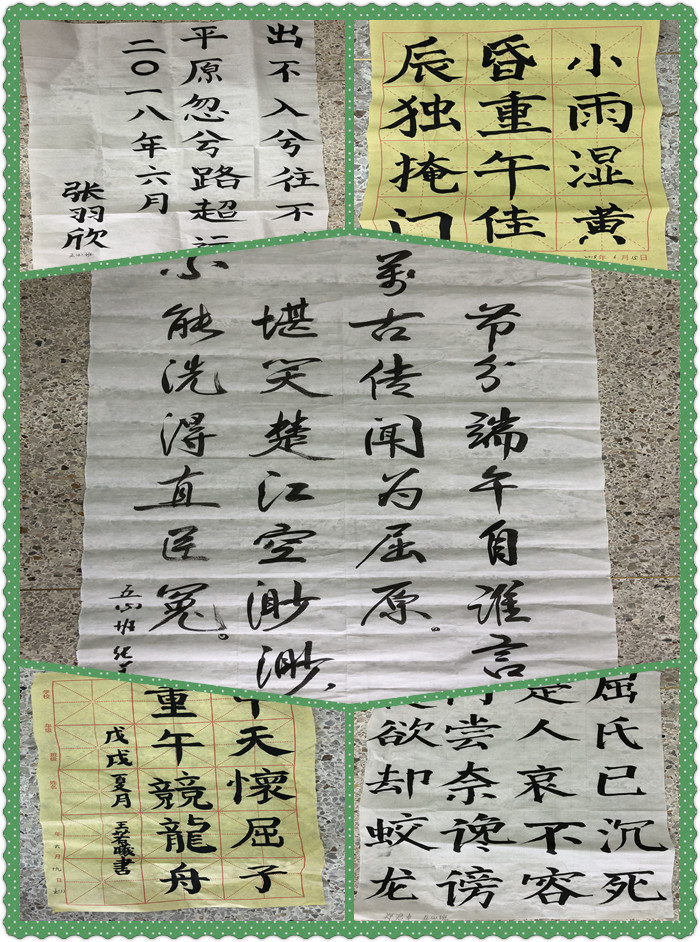 出不入兮往不
平原忽兮路超远
二〇一八年六月
张羽欣
小雨湿黄
昏重午佳
辰独掩门
节分端午自谁言
萬古传闻为屈原。
堪笑楚江空渺渺，
不能洗得直臣冤。
天懷屈子
重午競龍舟
戊戌夏月
屈氏已沉死
人哀不容
尝奈谗谤
欲却蛟龙